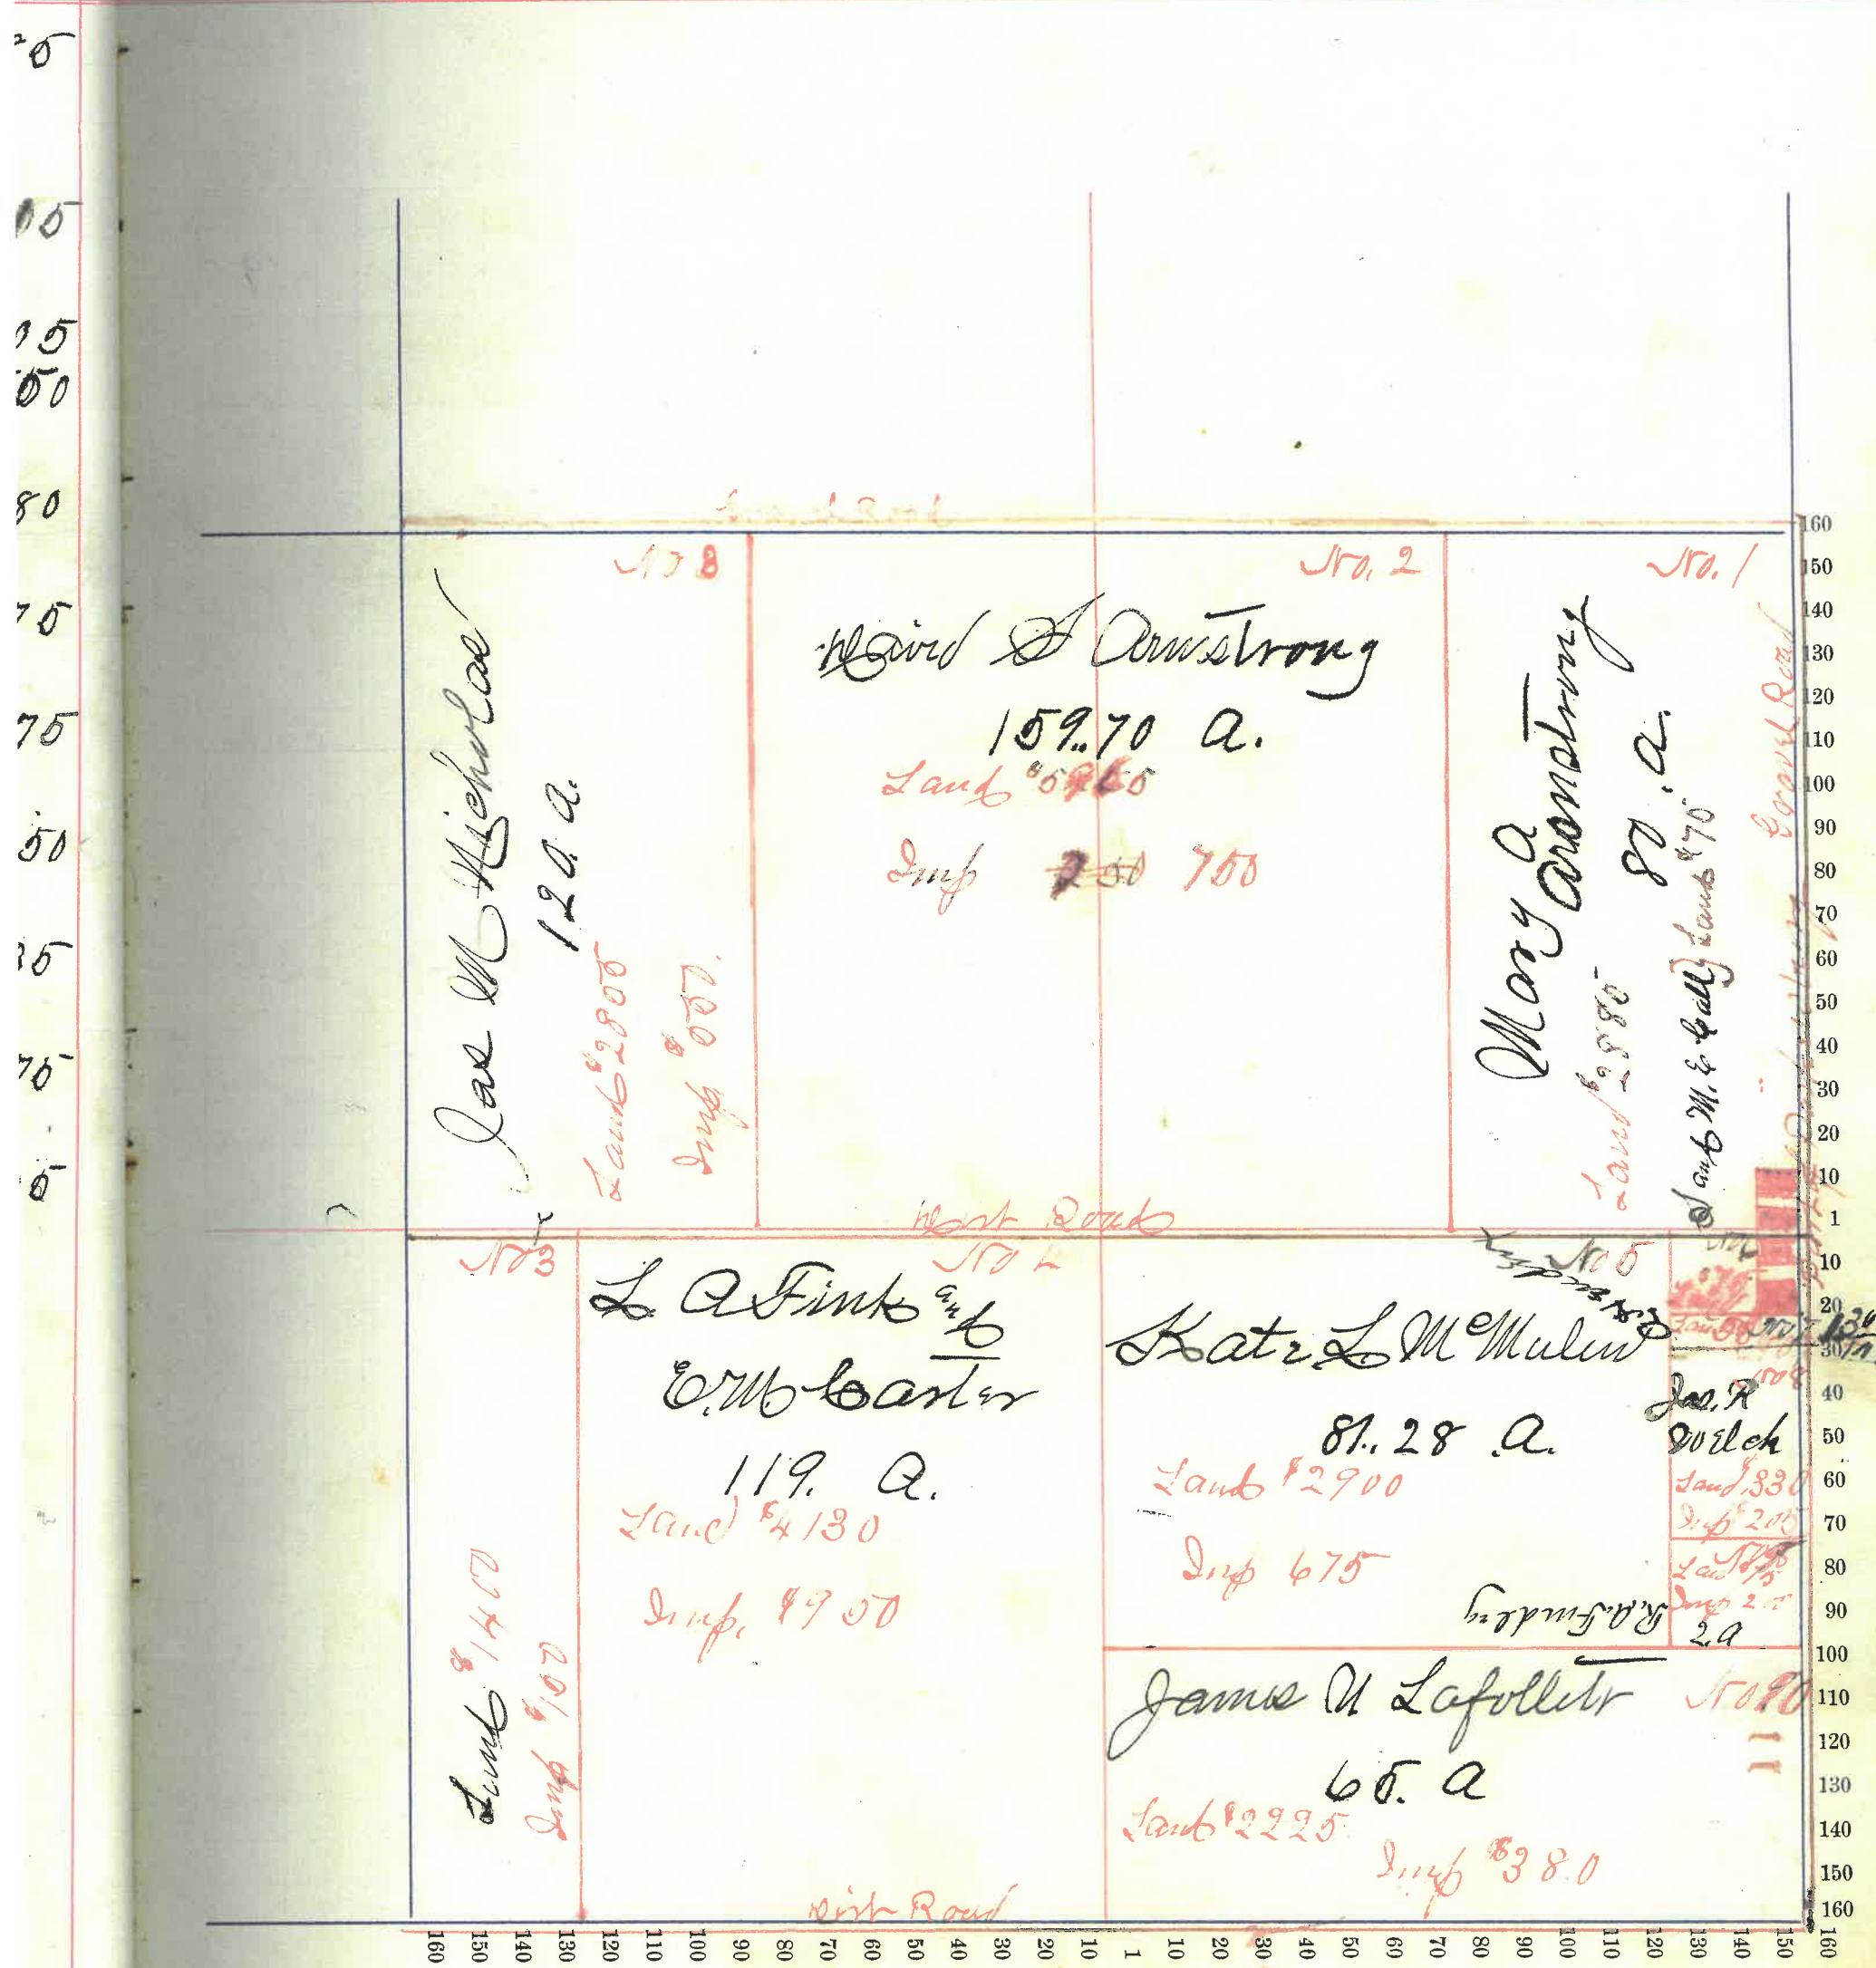 5
05
50
80
75
75
50
75
5
No 3
Jas M Nicholas
120. a.
Land $2805
Imp $550.
No. 2
S Armstrong
159.70 a.
Land
Imp 250 750
No. 1
Mary A
Armstrong
80. a.
Land $2885
M. E. Call} Land $75
Gravel Road
Dist Road
No 3
Land $1400
Imp $100
No
L A Fink and
E. M Carter
119. a.
Land $4130
Imp, $950
No 5
Kate L McMulen
81.28 a.
Land $2900
Imp 675
R.A. Findley
Jas. R
Welch
Land 330
Imp 205
Land
Imp
2 a
James N Lafollett
65. a
Land $2225
Imp $380
No
11
Dist Road
160
150
140
130
120
110
100
90
80
70
60
50
40
30
20
10
1
10
20
30
40
50
60
70
80
90
100
110
120
130
140
150
160
160 150 140 130 120 110 100 90 80 70 60 50 40 30 20 10 1 10 20 30 40 50 60 70 80 90 100 110 120 130 140 150 160